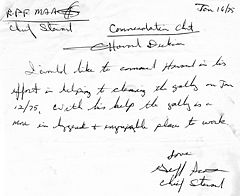 RPF MAA Jan 16/75
Chief Steward Commendation Chit
Howard Dickman
I would like to commend Howard in his
effort in helping to cleaning the galley on Jan
12/75. With his help the galley is a
more in & enjoyable place to work.
Love
Jeff
Chief Steward